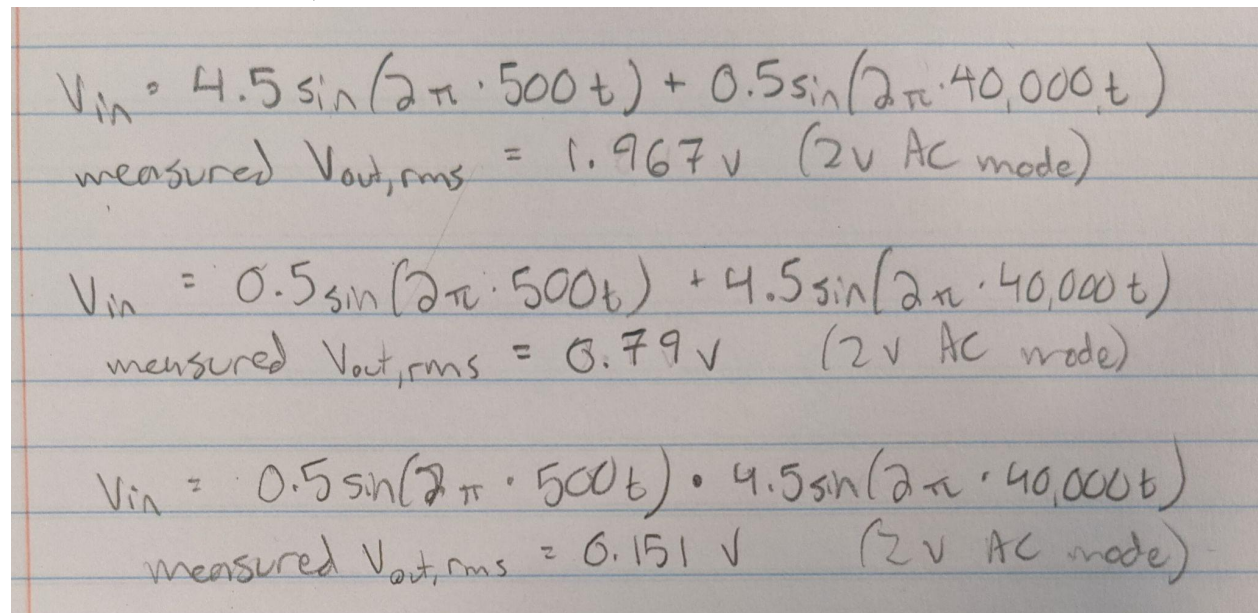 Vin = 4.5 sin(2π · 500t) + 0.5 sin(2π · 40,000t)
measured Vout,rms = 1.967 v (2v AC mode)
Vin = 0.5 sin(2π · 500t) + 4.5 sin(2π · 40,000t)
measured Vout,rms = 0.79 v (2v AC mode)
Vin = 0.5 sin(2π · 500t) · 4.5 sin(2π · 40,000t)
measured Vout,rms = 0.151 V (2v AC mode)